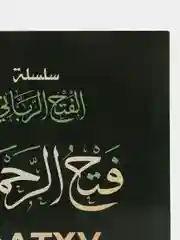 سلسلة
الفَتْحُ الرَّبَّانِي
فَتْحُ الرَّحْمـ